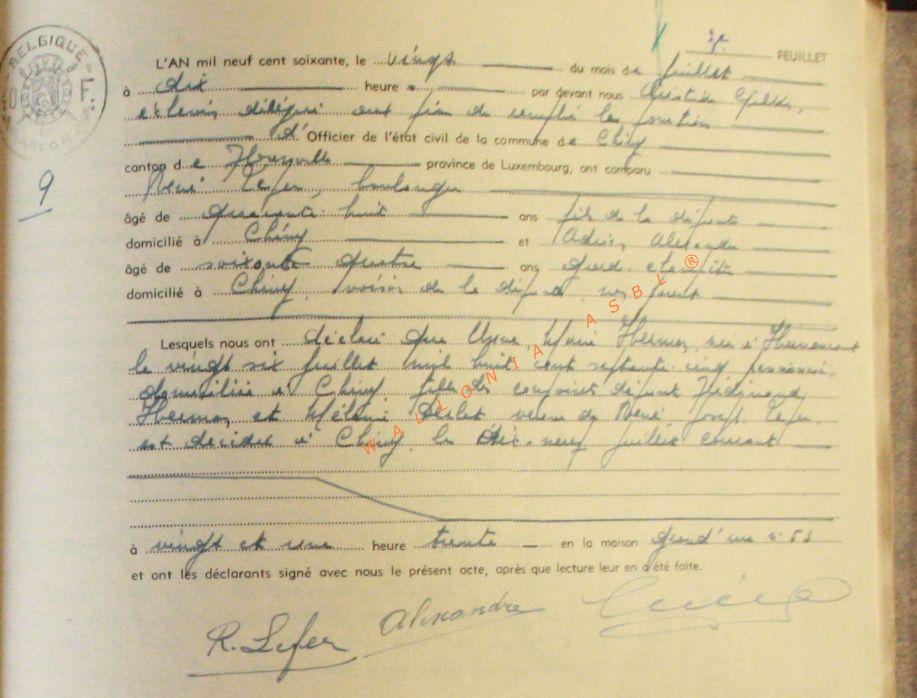 BELGIQUE
F.
2e FEUILLET
L'AN mil neuf cent soixante, le vingt du mois de juillet
à dix heure par devant nous
échevin délégué aux fin de remplir les fonctions
d' Officier de l'état civil de la commune de Chiny
canton de Florenville province de Luxembourg, ont comparu
9
René Lefer, boulanger
âgé de quarante-huit ans fils de la défunte
domicilié à Chiny et Alexandre
âgé de soixante quatre ans, garde-champêtre
domicilié à Chiny, voisin de la défunte, non parent
Lesquels nous ont déclaré que Marie Hermon, née à
le vingt six juillet mil huit cent septante-cinq, pensionnée
domiciliée à Chiny fille des conjoints défunt Ferdinand
Hermon et Mélanie veuve de René Joseph Lefer
est décédée à Chiny, le dix-neuf juillet courant
à vingt et une heure trente en la maison grand'rue n° 53
et ont les déclarants signé avec nous le présent acte, après que lecture leur en a été faite.
R. Lefer Alexandre
WALLONIA ASBL ®